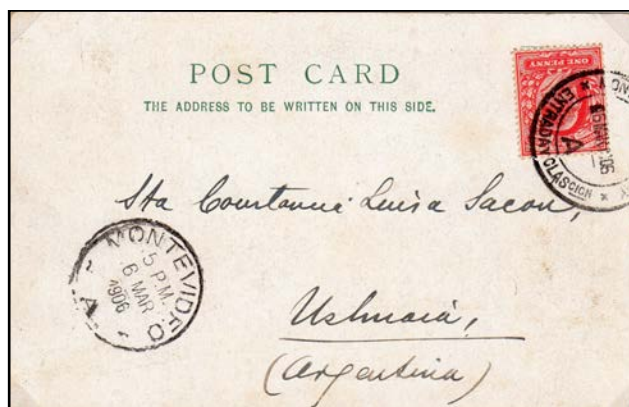 POST CARD
THE ADDRESS TO BE WRITTEN ON THIS SIDE.
ONE PENNY
ENTRADA Y CLASCION
A
16 MAR 06
Sta Constanni Luisa Sacon,
MONTEVIDEO
5 P.M.
6 MAR
1906
A
Ushuaiá,
(Argentina)